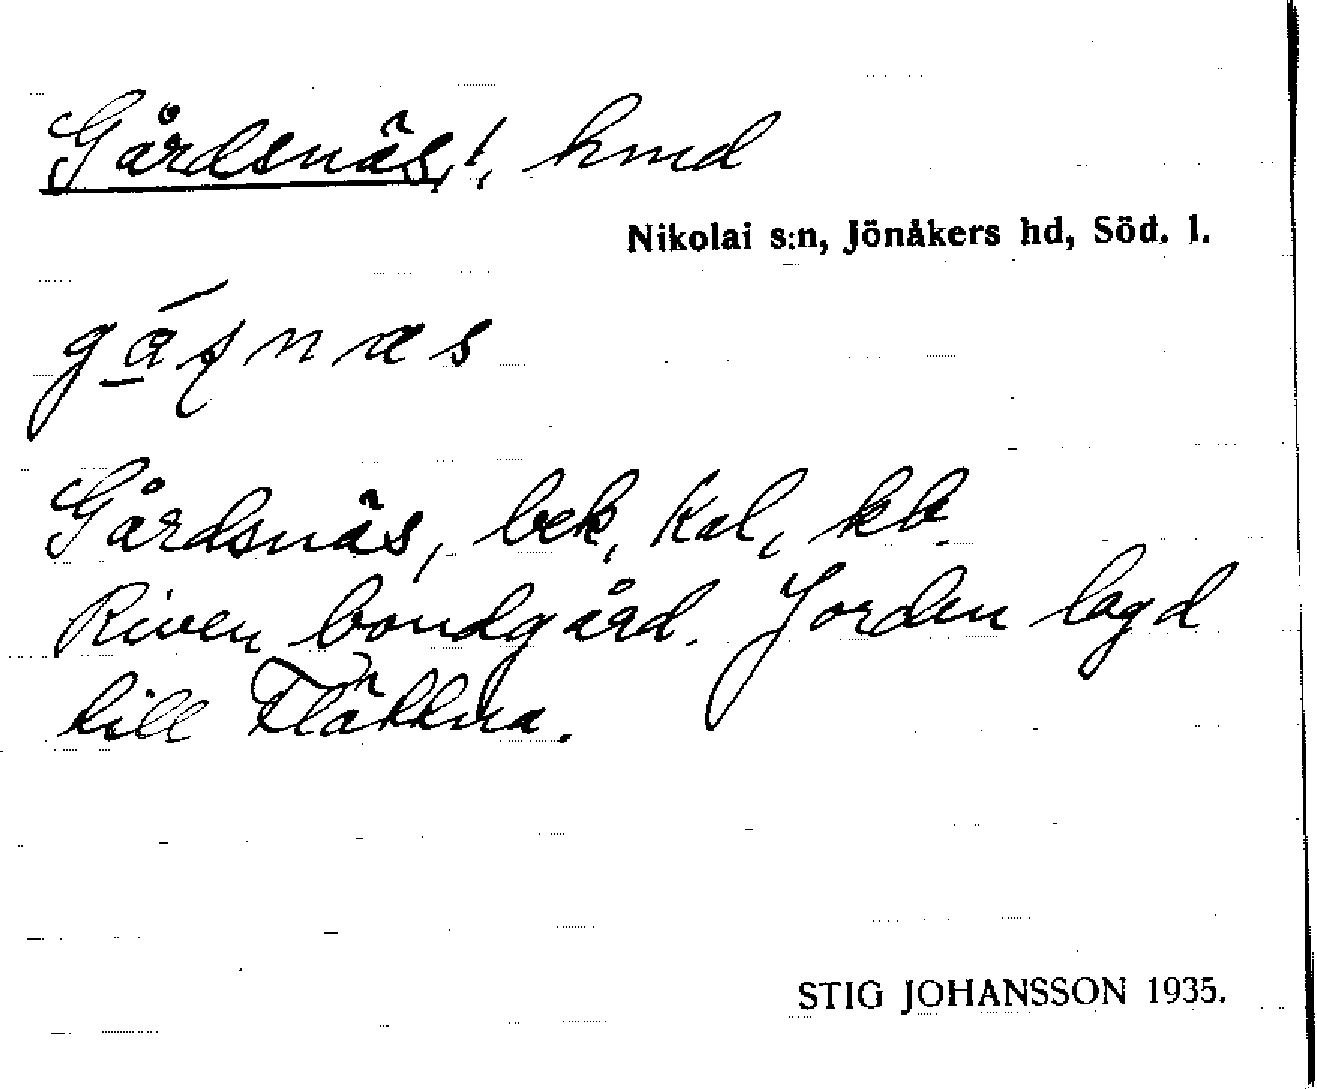 Gårdsnäs, !, hmd
Nikolai s:n, Jönåkers hd, Söd. l.
Gårdsnäs, bek, Kal, kb.
Riven bondgård. Jorden lagd
till Fläkkna.
STIG JOHANSSON 1935.